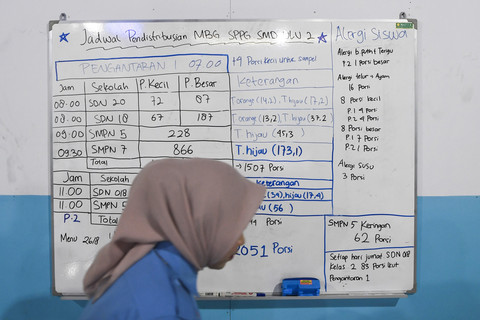 Jadwal Pendistribusian MBG SPPG SMD ULU 2
PENGANTARAN 1 07.00
+9 Porsi Kecil untuk sampel
Jam Sekolah P.Kecil P.Besar Keterangan
08.00 SDN 20 72 87 T.orange (14,2), T.hijau (17,2)
08.00 SDN 18 67 187 T.orange (13,2), T.hijau (37,2
09.00 SMPN 5 228 T.hijau (45,3)
09.30 SMPN 7 866 T.hijau (173,1)
Total → 1507 Porsi
Jam Sekolah Keterangan
11.00 SDN 018 (34), hijau (17,4)
11.00 SMPN 5 (56)
P.2 Total Porsi
Menu 26/8
2051 Porsi
Alergi Siswa
Alergi b. putih t Terigu
P.2 1 Porsi besar
Alergi telur + Ayam
16 Porsi
8 Porsi kecil
P.1 4 Porsi
P.2 4 Porsi
8 Porsi besar
P.1 7 Porsi
P.2 1 Porsi
Alergi SUSU
3 Porsi
SMPN 5 Keringan
62 Porsi
Setiap hari jumat SDN 018
Kelas 2 83 Porsi ikut
Pengantaran 1